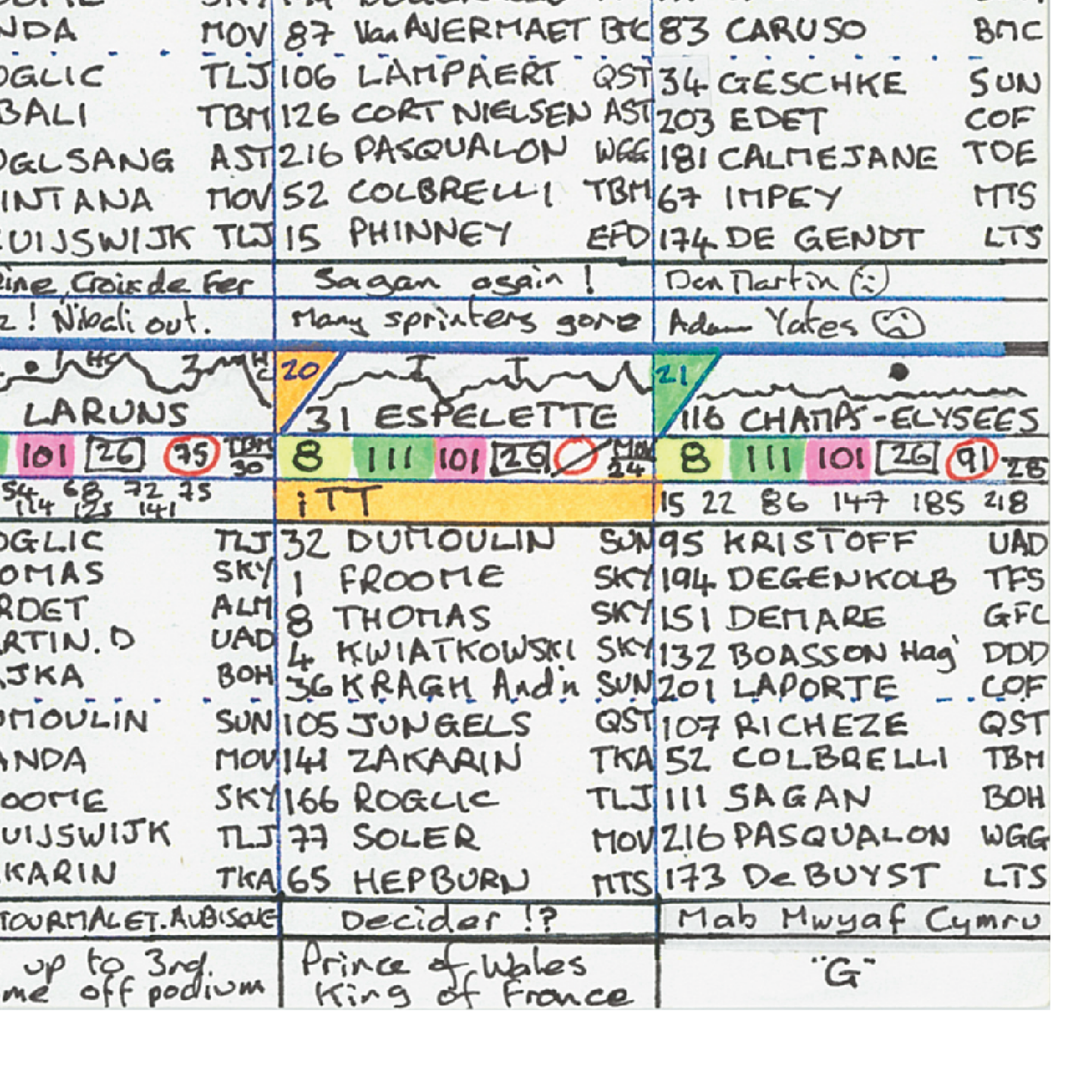 NDA MOV 87 Van AVERMAET BMC 83 CARUSO BMC
OGLIC TLJ 106 LAMPAERT QST 34 GESCHKE SUN
BALI TBM 126 CORT NIELSEN AST 203 EDET COF
OGLSANG AST 216 PASQUALON WGG 181 CALMEJANE TDE
INTANA MOV 52 COLBRELLI TBM 67 IMPEY MTS
UIJSWIJK TLJ 15 PHINNEY EFD 174 DE GENDT LTS
ine, Croix de Fer Sagan again! Dan Martin
z! Nibali out. Many sprinters gone Adam Yates
HC 3 HC 20 I I 21
LARUNS 31 ESPELETTE 116 CHAMPS-ELYSEES
101 26 75 TBM 30 8 111 101 26 MOV 24 8 111 101 26 91 28
54 68 72 75 iTT 15 22 86 147 185 218
114 125 141
OGLIC TLJ 32 DUMOULIN SUN 95 KRISTOFF UAD
OMAS SKY 1 FROOME SKY 194 DEGENKOLB TFS
RDET ALM 8 THOMAS SKY 151 DEMARE GFC
RTIN.D UAD 4 KWIATKOWSKI SKY 132 BOASSON Hag' DDD
JKA BOH 36 KRAGH And'n SUN 201 LAPORTE COF
UMOULIN SUN 105 JUNGELS QST 107 RICHEZE QST
ANDA MOV 141 ZAKARIN TKA 52 COLBRELLI TBM
OOME SKY 166 ROGLIC TLJ 111 SAGAN BOH
UIJSWIJK TLJ 77 SOLER MOV 216 PASQUALON WGG
KARIN TKA 65 HEPBURN MTS 173 De BUYST LTS
TOURMALET. AUBISQUE Decider !? Mab Mwyaf Cymru
up to 3rd. Prince of Wales "G"
me off podium King of France